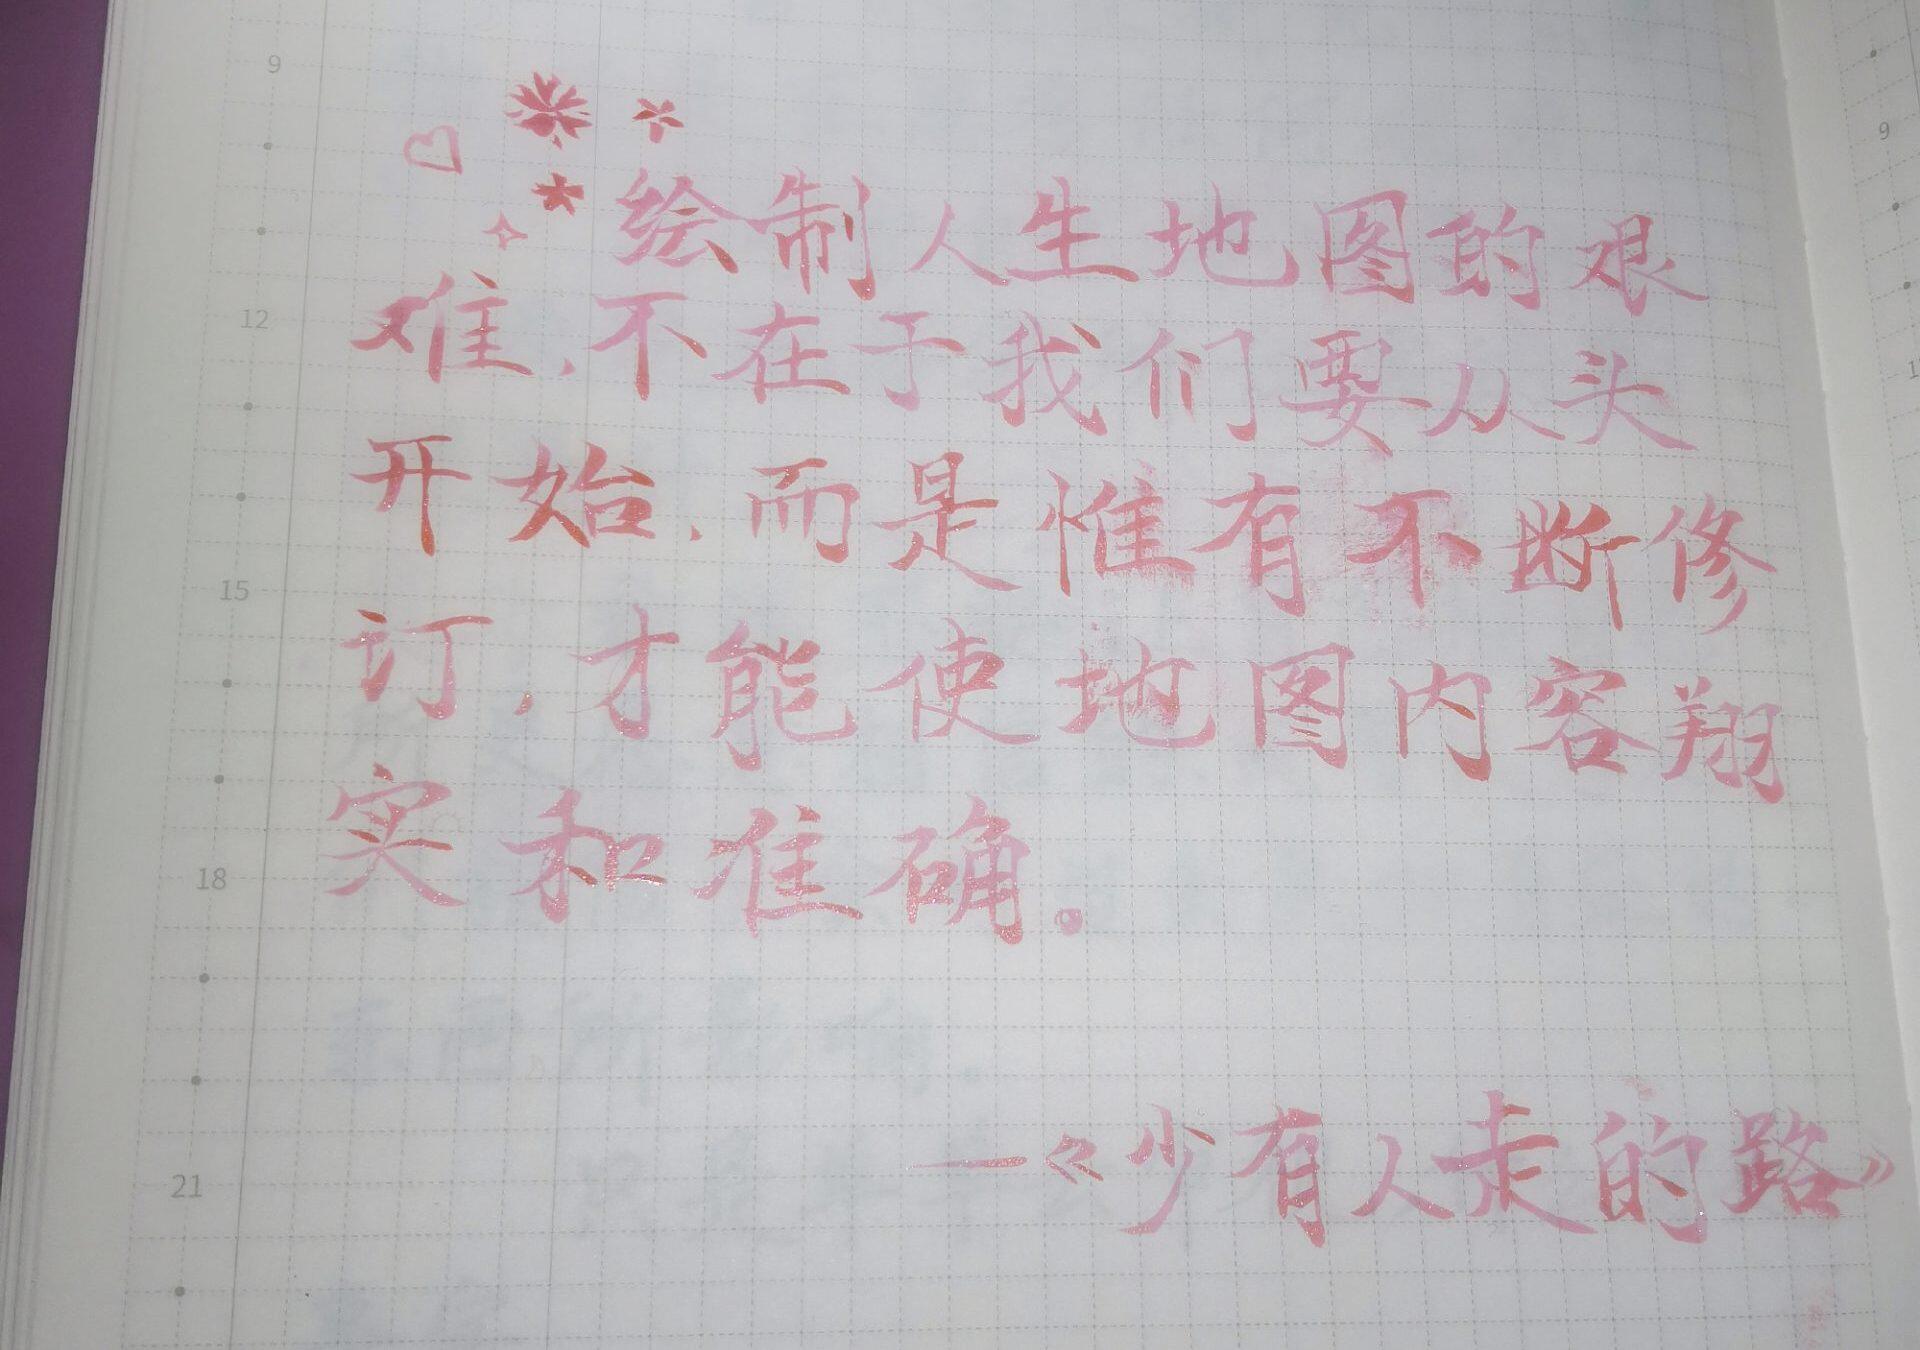 9
绘制人生地图的艰
12
难,不在于我们要从头
开始,而是惟有不断修
15
订,才能使地图内容翔
实和准确。
18
—《少有人走的路》
21
9